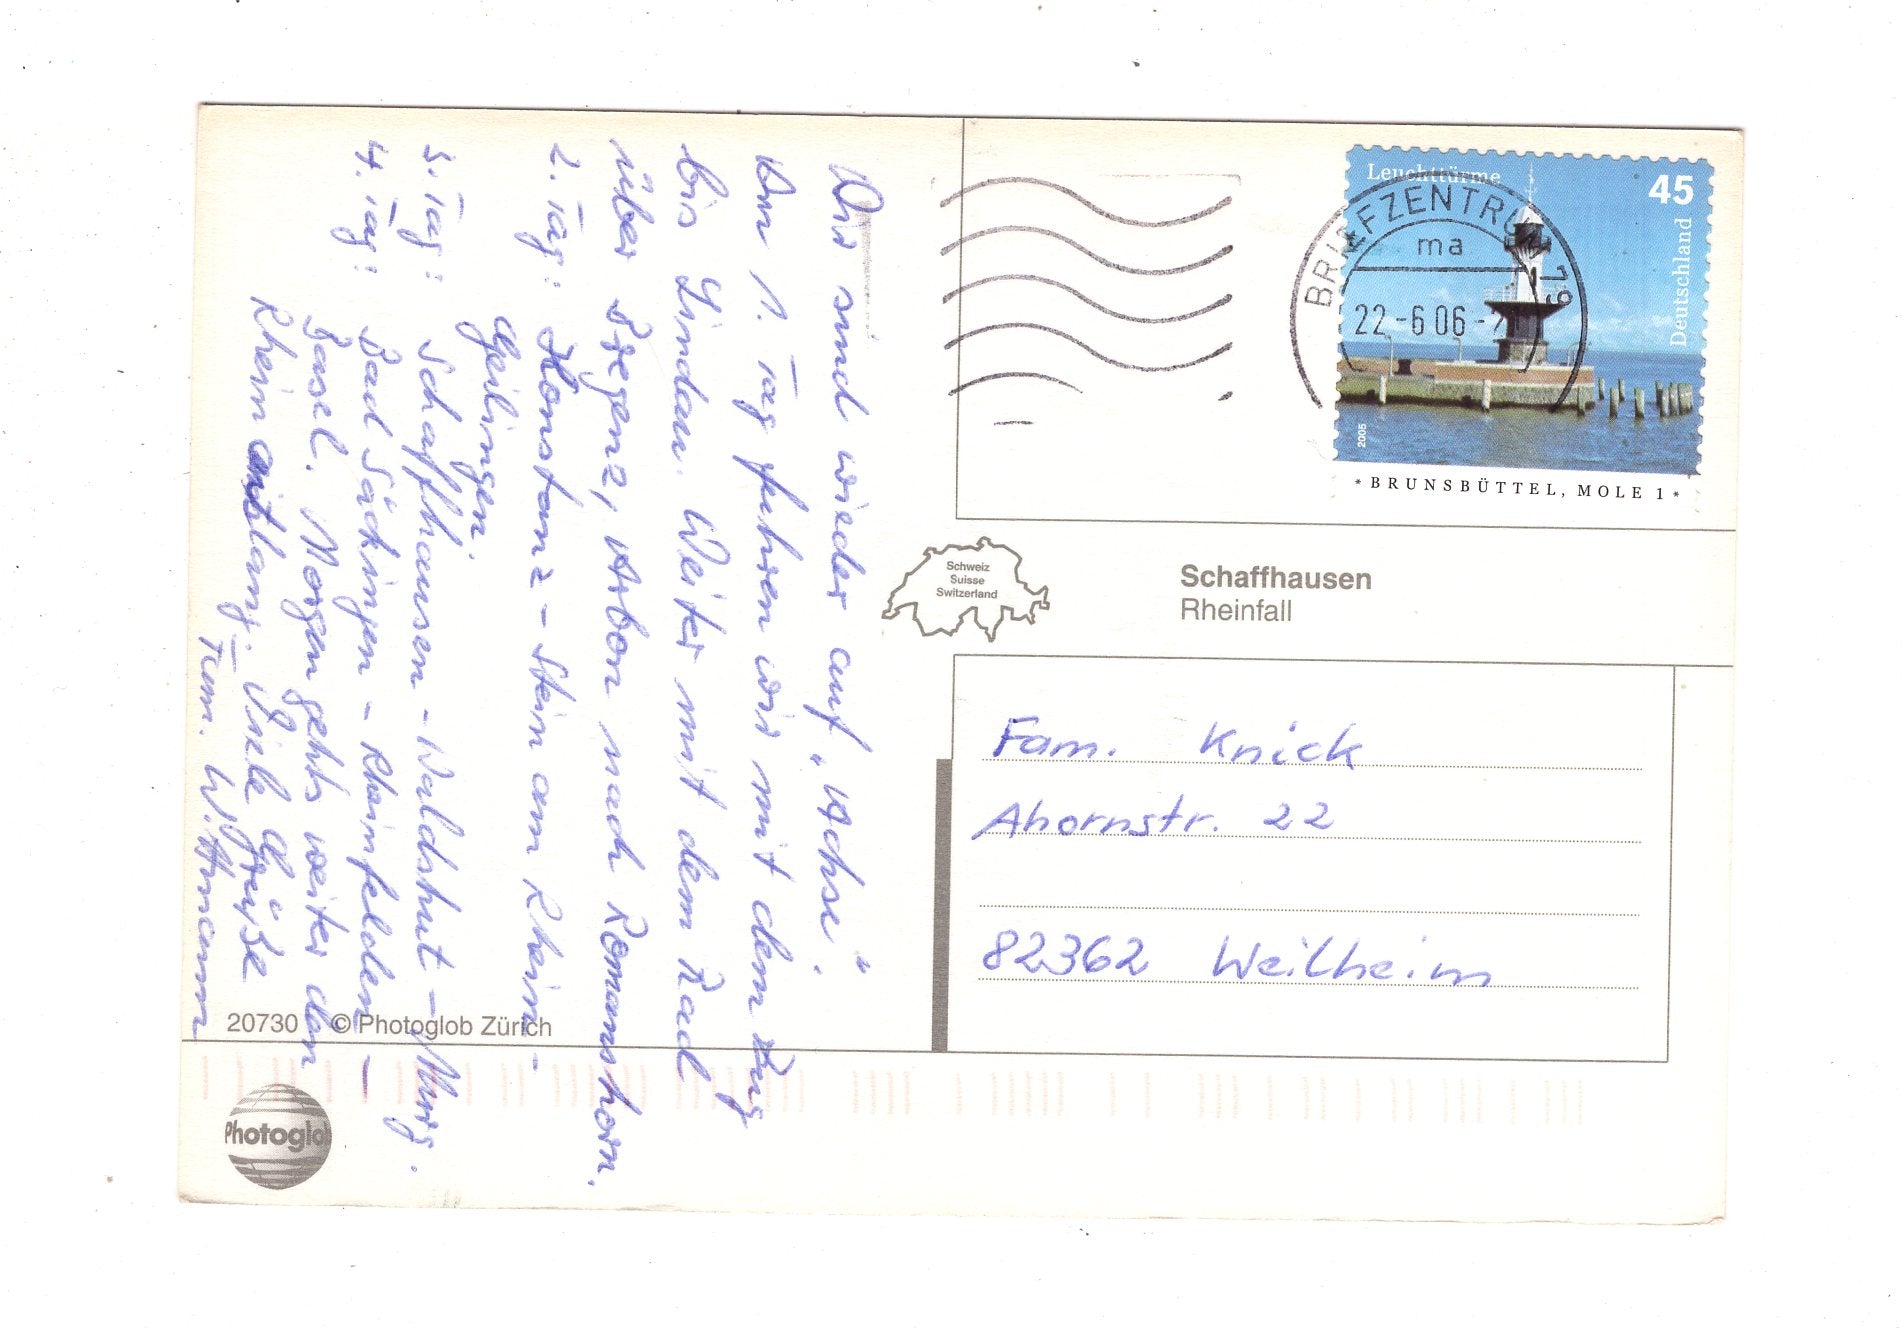 Wir sind wieder auf "Achse".
Am 1. Tag fuhren wir mit dem Zug
bis Lindau. Weiter mit dem Rad
über Bregenz, Arbon nach Romanshorn.
2. Tag: Konstanz - Stein am Rhein -
Gailingen.
3. Tag: Schaffhausen - Waldshut - Murg.
4. Tag: Bad Säckingen - Rheinfelden -
Basel. Morgen gehts weiter den
Rhein entlang. Viele Grüße
Fam. Wittmann
Leuchttürme
45
Deutschland
2005
* BRUNSBÜTTEL, MOLE 1 *
BRIEFZENTRUM 79
ma
22 -6 06 -
Schweiz
Suisse
Switzerland
Schaffhausen
Rheinfall
Fam. Knick
Ahornstr. 22
82362 Weilheim
20730 © Photoglob Zürich
Photoglob